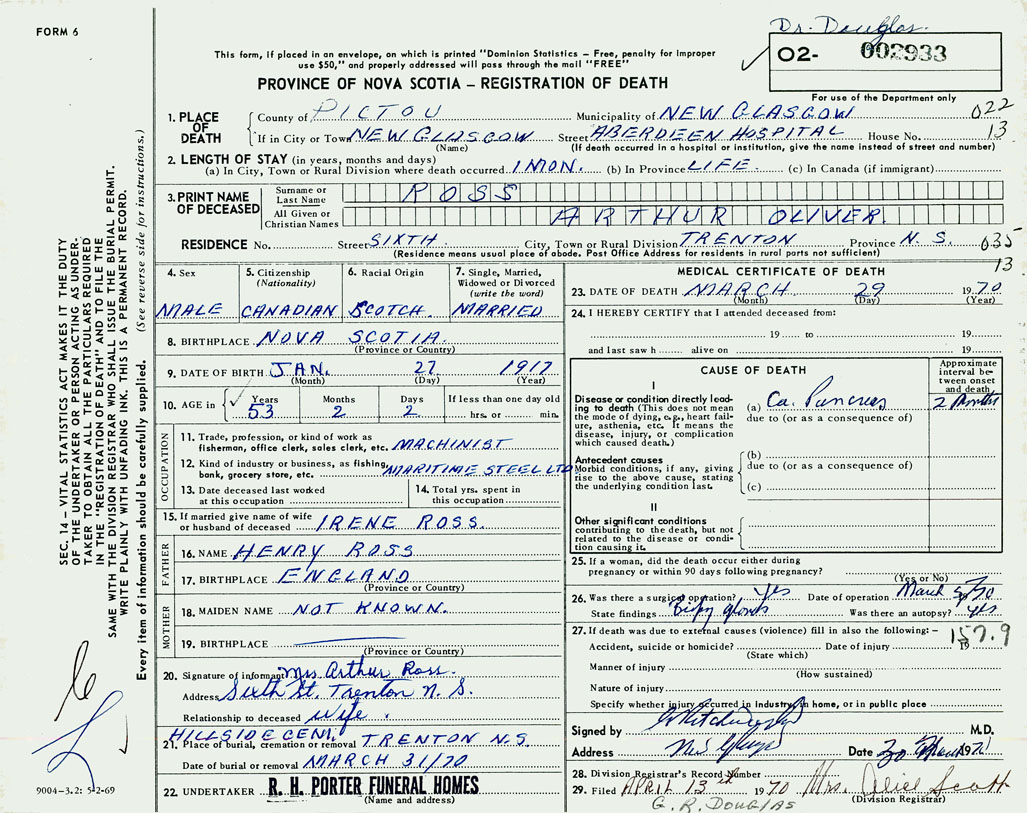 FORM 6
Dr. Douglas
This form, if placed in an envelope, on which is printed "Dominion Statistics – Free, penalty for improper
use $50," and properly addressed will pass through the mail "FREE"
02- 002933
PROVINCE OF NOVA SCOTIA – REGISTRATION OF DEATH
For use of the Department only
1. PLACE OF DEATH
County of PICTOU Municipality of NEW GLASGOW 022
If in City or Town NEW GLASGOW Street ABERDEEN HOSPITAL House No. 13
(Name) (If death occurred in a hospital or institution, give the name instead of street and number)
2. LENGTH OF STAY (in years, months and days)
(a) In City, Town or Rural Division where death occurred 1 MON. (b) In Province LIFE. (c) In Canada (if immigrant)
3. PRINT NAME OF DECEASED
Surname or Last Name ROSS
All Given or Christian Names ARTHUR OLIVER
RESIDENCE No. Street SIXTH City, Town or Rural Division TRENTON Province N.S. 035
(Residence means usual place of abode. Post Office Address for residents in rural parts not sufficient)
13
4. Sex
MALE
5. Citizenship
(Nationality)
CANADIAN
6. Racial Origin
SCOTCH
7. Single, Married,
Widowed or Divorced
(write the word)
MARRIED
8. BIRTHPLACE NOVA SCOTIA
(Province or Country)
9. DATE OF BIRTH JAN. 27 1917
(Month) (Day) (Year)
10. AGE in Years 53 Months 2 Days 2 If less than one day old
hrs. or min.
OCCUPATION
11. Trade, profession, or kind of work as
fisherman, office clerk, sales clerk, etc. MACHINIST
12. Kind of industry or business, as fishing,
bank, grocery store, etc. MARITIME STEEL LTD
13. Date deceased last worked
at this occupation
14. Total yrs. spent in
this occupation
15. If married give name of wife
or husband of deceased IRENE ROSS.
FATHER
16. NAME HENRY ROSS
17. BIRTHPLACE ENGLAND
(Province or Country)
MOTHER
18. MAIDEN NAME NOT KNOWN.
19. BIRTHPLACE
(Province or Country)
20. Signature of informant Mrs Arthur Ross.
Address Sixth St. Trenton N. S.
Relationship to deceased wife.
HILLSIDE CEM.
21. Place of burial, cremation or removal TRENTON N.S.
Date of burial or removal MARCH 31/70
22. UNDERTAKER R. H. PORTER FUNERAL HOMES
(Name and address)
MEDICAL CERTIFICATE OF DEATH
23. DATE OF DEATH MARCH 29 1970
(Month) (Day) (Year)
24. I HEREBY CERTIFY that I attended deceased from:
19 to 19
and last saw h alive on 19
CAUSE OF DEATH
Approximate
interval be-
tween onset
and death
I
Disease or condition directly lead-
ing to death (This does not mean
the mode of dying, e.g., heart fail-
ure, asthenia, etc. It means the
disease, injury, or complication
which caused death.)
(a) Ca. Pancreas 2 Months
due to (or as a consequence of)
Antecedent causes
Morbid conditions, if any, giving
rise to the above cause, stating
the underlying condition last.
(b)
due to (or as a consequence of)
(c)
II
Other significant conditions
contributing to the death, but not
related to the disease or condi-
tion causing it.
25. If a woman, did the death occur either during
pregnancy or within 90 days following pregnancy?
(Yes or No)
26. Was there a surgical operation? Yes Date of operation March 5/70
State findings Was there an autopsy? yes
27. If death was due to external causes (violence) fill in also the following:– 157.9
Accident, suicide or homicide? Date of injury 19
(State which)
Manner of injury
(How sustained)
Nature of injury
Specify whether injury occurred in industry, in home, or in public place
Signed by M.D.
Address Date 30 March 1970
28. Division Registrar's Record Number
29. Filed APRIL 13th 1970 Mrs. Alice Scott
(Division Registrar)
G. R. DOUGLAS
SEC. 14 – VITAL STATISTICS ACT MAKES IT THE DUTY
OF THE UNDERTAKER OR PERSON ACTING AS UNDER-
TAKER TO OBTAIN ALL THE PARTICULARS REQUIRED
IN THE "REGISTRATION OF DEATH" AND TO FILE THE
SAME WITH THE DIVISION REGISTRAR WHO SHALL ISSUE THE BURIAL PERMIT.
WRITE PLAINLY WITH UNFADING INK. THIS IS A PERMANENT RECORD.
Every item of information should be carefully supplied. (See reverse side for instructions.)
9004-3.2: 5-2-69